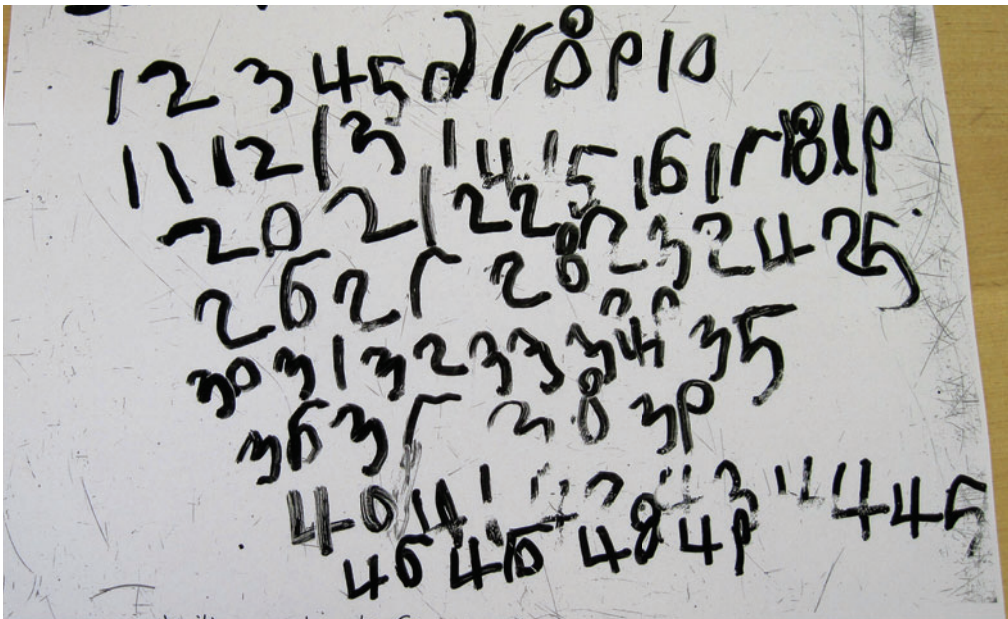 1 2 3 4 5 6 7 8 9 10
11 12 13 14 15 16 17 18 19
20 21 22 23 24 25
26 27 28 29
30 31 32 33 34 35
36 37 38 39
40 41 42 43 44 45
46 46 48 49